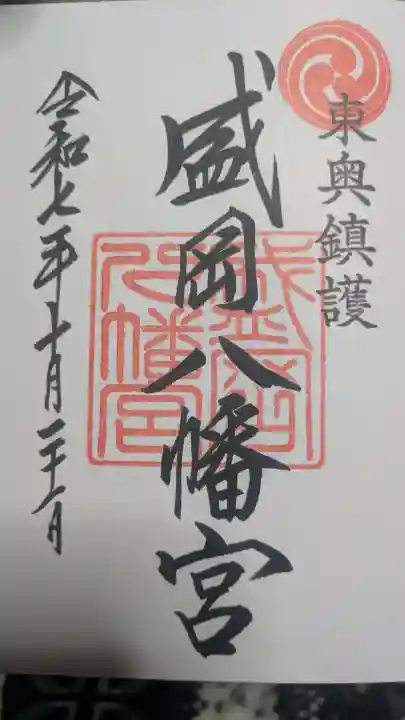 東奥鎮護
盛岡八幡宮
盛岡八幡宮
令和七年十月二十六日